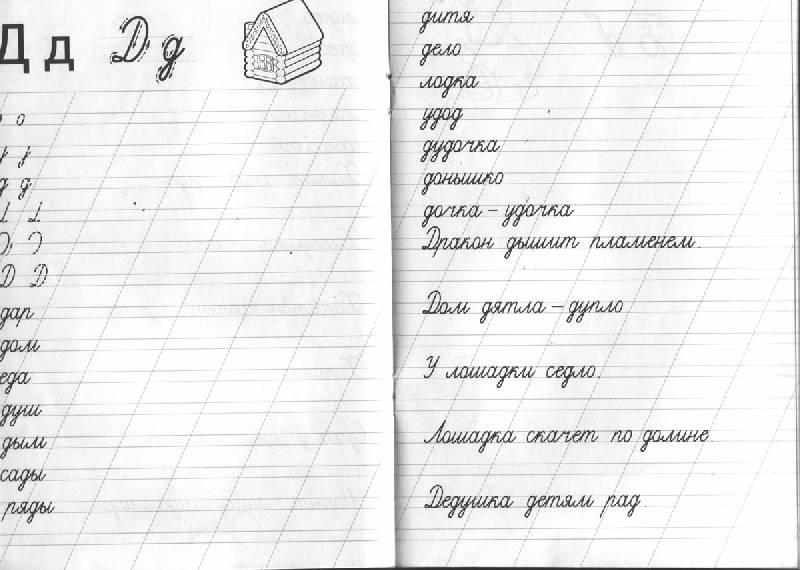 Д д Д д
о
д д
д д
Д Д
дар
дом
еда
душ
дым
сады
ряды
дитя
дело
лодка
удод
дудочка
донышко
дочка – удочка
Дракон дышит пламенем.
Дом дятла – дупло
У лошадки седло.
Лошадка скачет по долине
Дедушка детям рад.